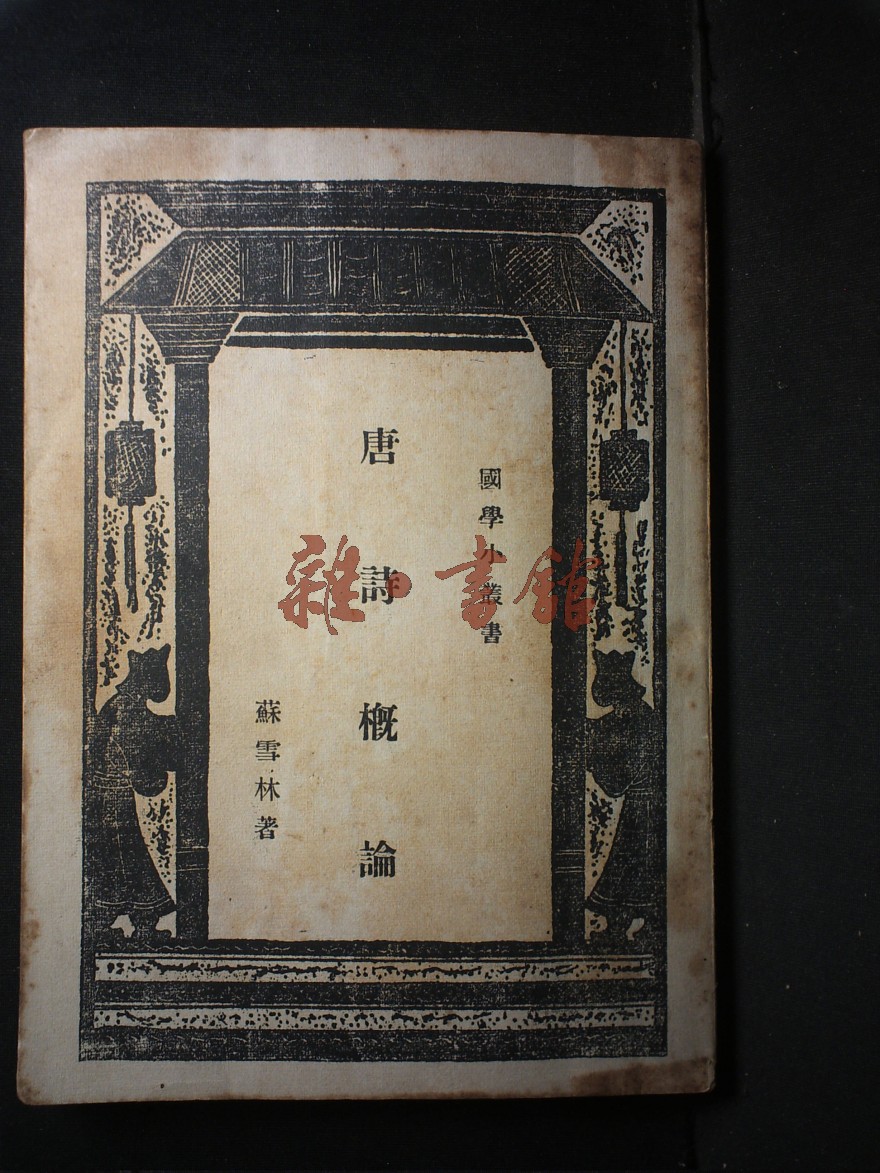 國學小叢書
唐詩概論
蘇雪林著
雜·書館